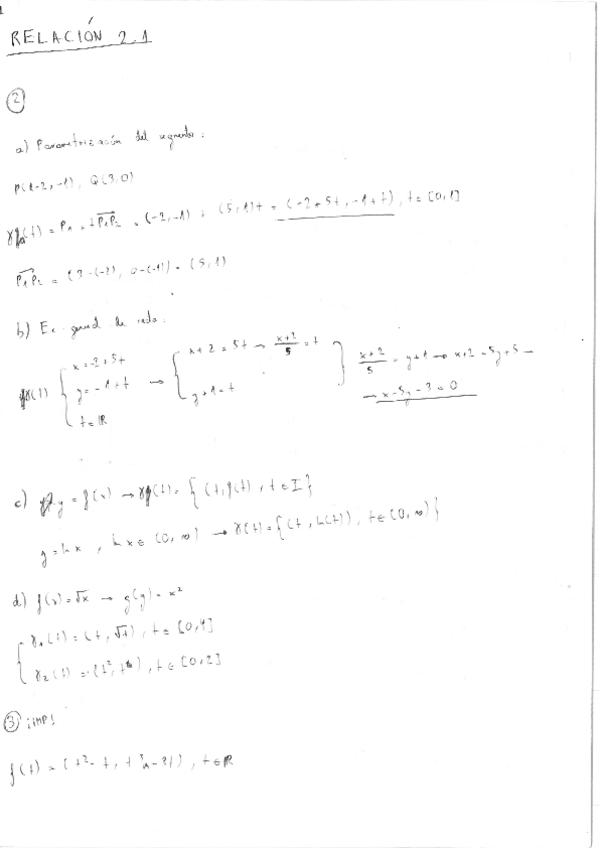 RELACIÓN 2.1
②
a) Parametrización del segmento:
P(-2,-1), Q(3,0)
γ(t) = P₁ + tP₁P₂ = (-2,-1) + (5,1)t = (-2+5t, -1+t), t ∈ [0,1]
P₁P₂ = (3-(-2), 0-(-1)) = (5,1)
b) Ec. general de recta:
γ(t) { x = -2+5t
y = -1+t
t ∈ ℝ
→ { x+2 = 5t → x+2/5 = t
y+1 = t
} x+2/5 = y+1 → x+2 = 5y+5 →
→ x-5y-3 = 0
c) y = f(x) → γ(t) = {(t, f(t), t ∈ I}
y = ln x, ln x ∈ (0,∞) → γ(t) = {(t, ln(t)), t ∈ (0,∞)}
d) f(x) = √x → g(y) = x²
γ₁(t) = (t, √t), t ∈ [0,4]
γ₂(t) = (t², t), t ∈ [0,2]
③ ¡IMP!
f(t) = (t²-t, t), t ∈ ℝ